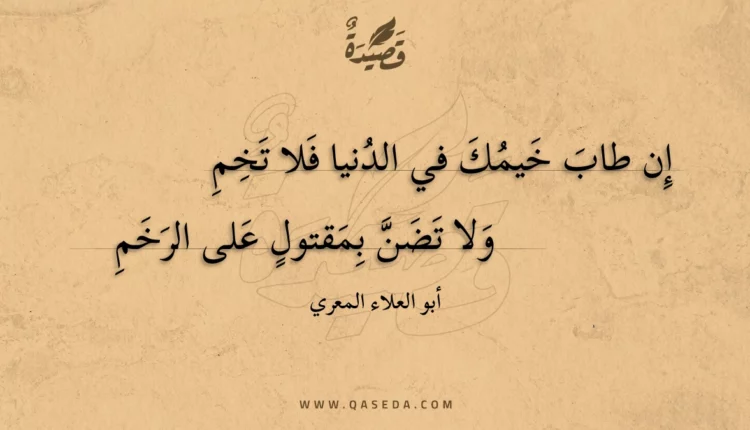 قَصِيدَةٌ
إِن طابَ خَيمُكَ في الدُنيا فَلا تَخِمِ
وَلا تَضَنَّ بِمَقتولٍ عَلى الرَخَمِ
أبو العلاء المعري
WWW.QASEDA.COM